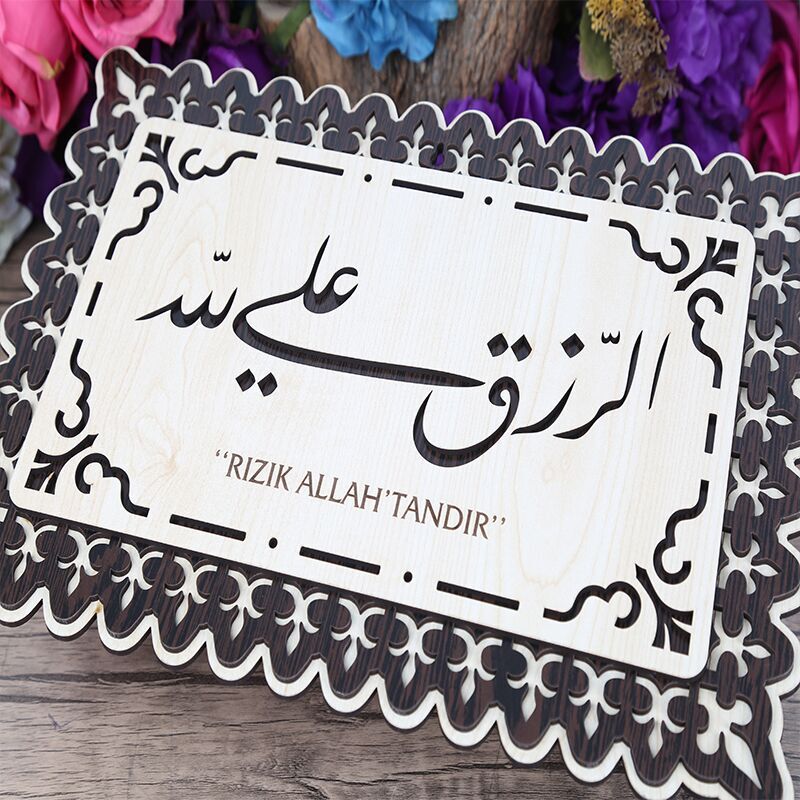 الرّزق علي للّه
‘‘RIZIK ALLAH’TANDIR’’